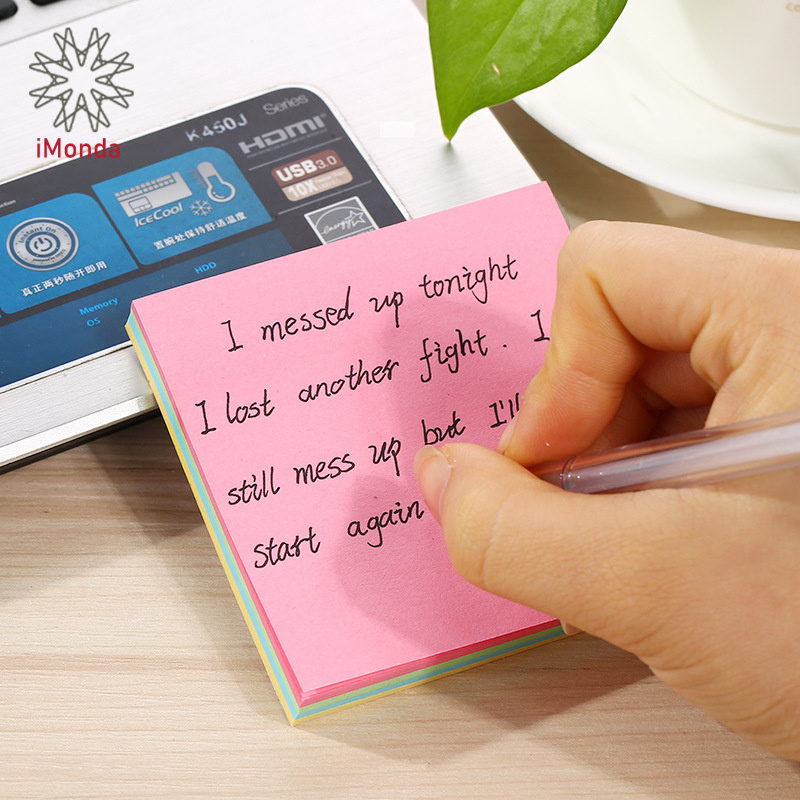 iMonda
K450J Series
HDMI
USB3.0
10X
Instant On
IceCool
energy
真正两秒随开即用
置腕处保持舒适温度
Memory
HDD
OS
I messed up tonight
I lost another fight. I
still mess up but I'll
start again